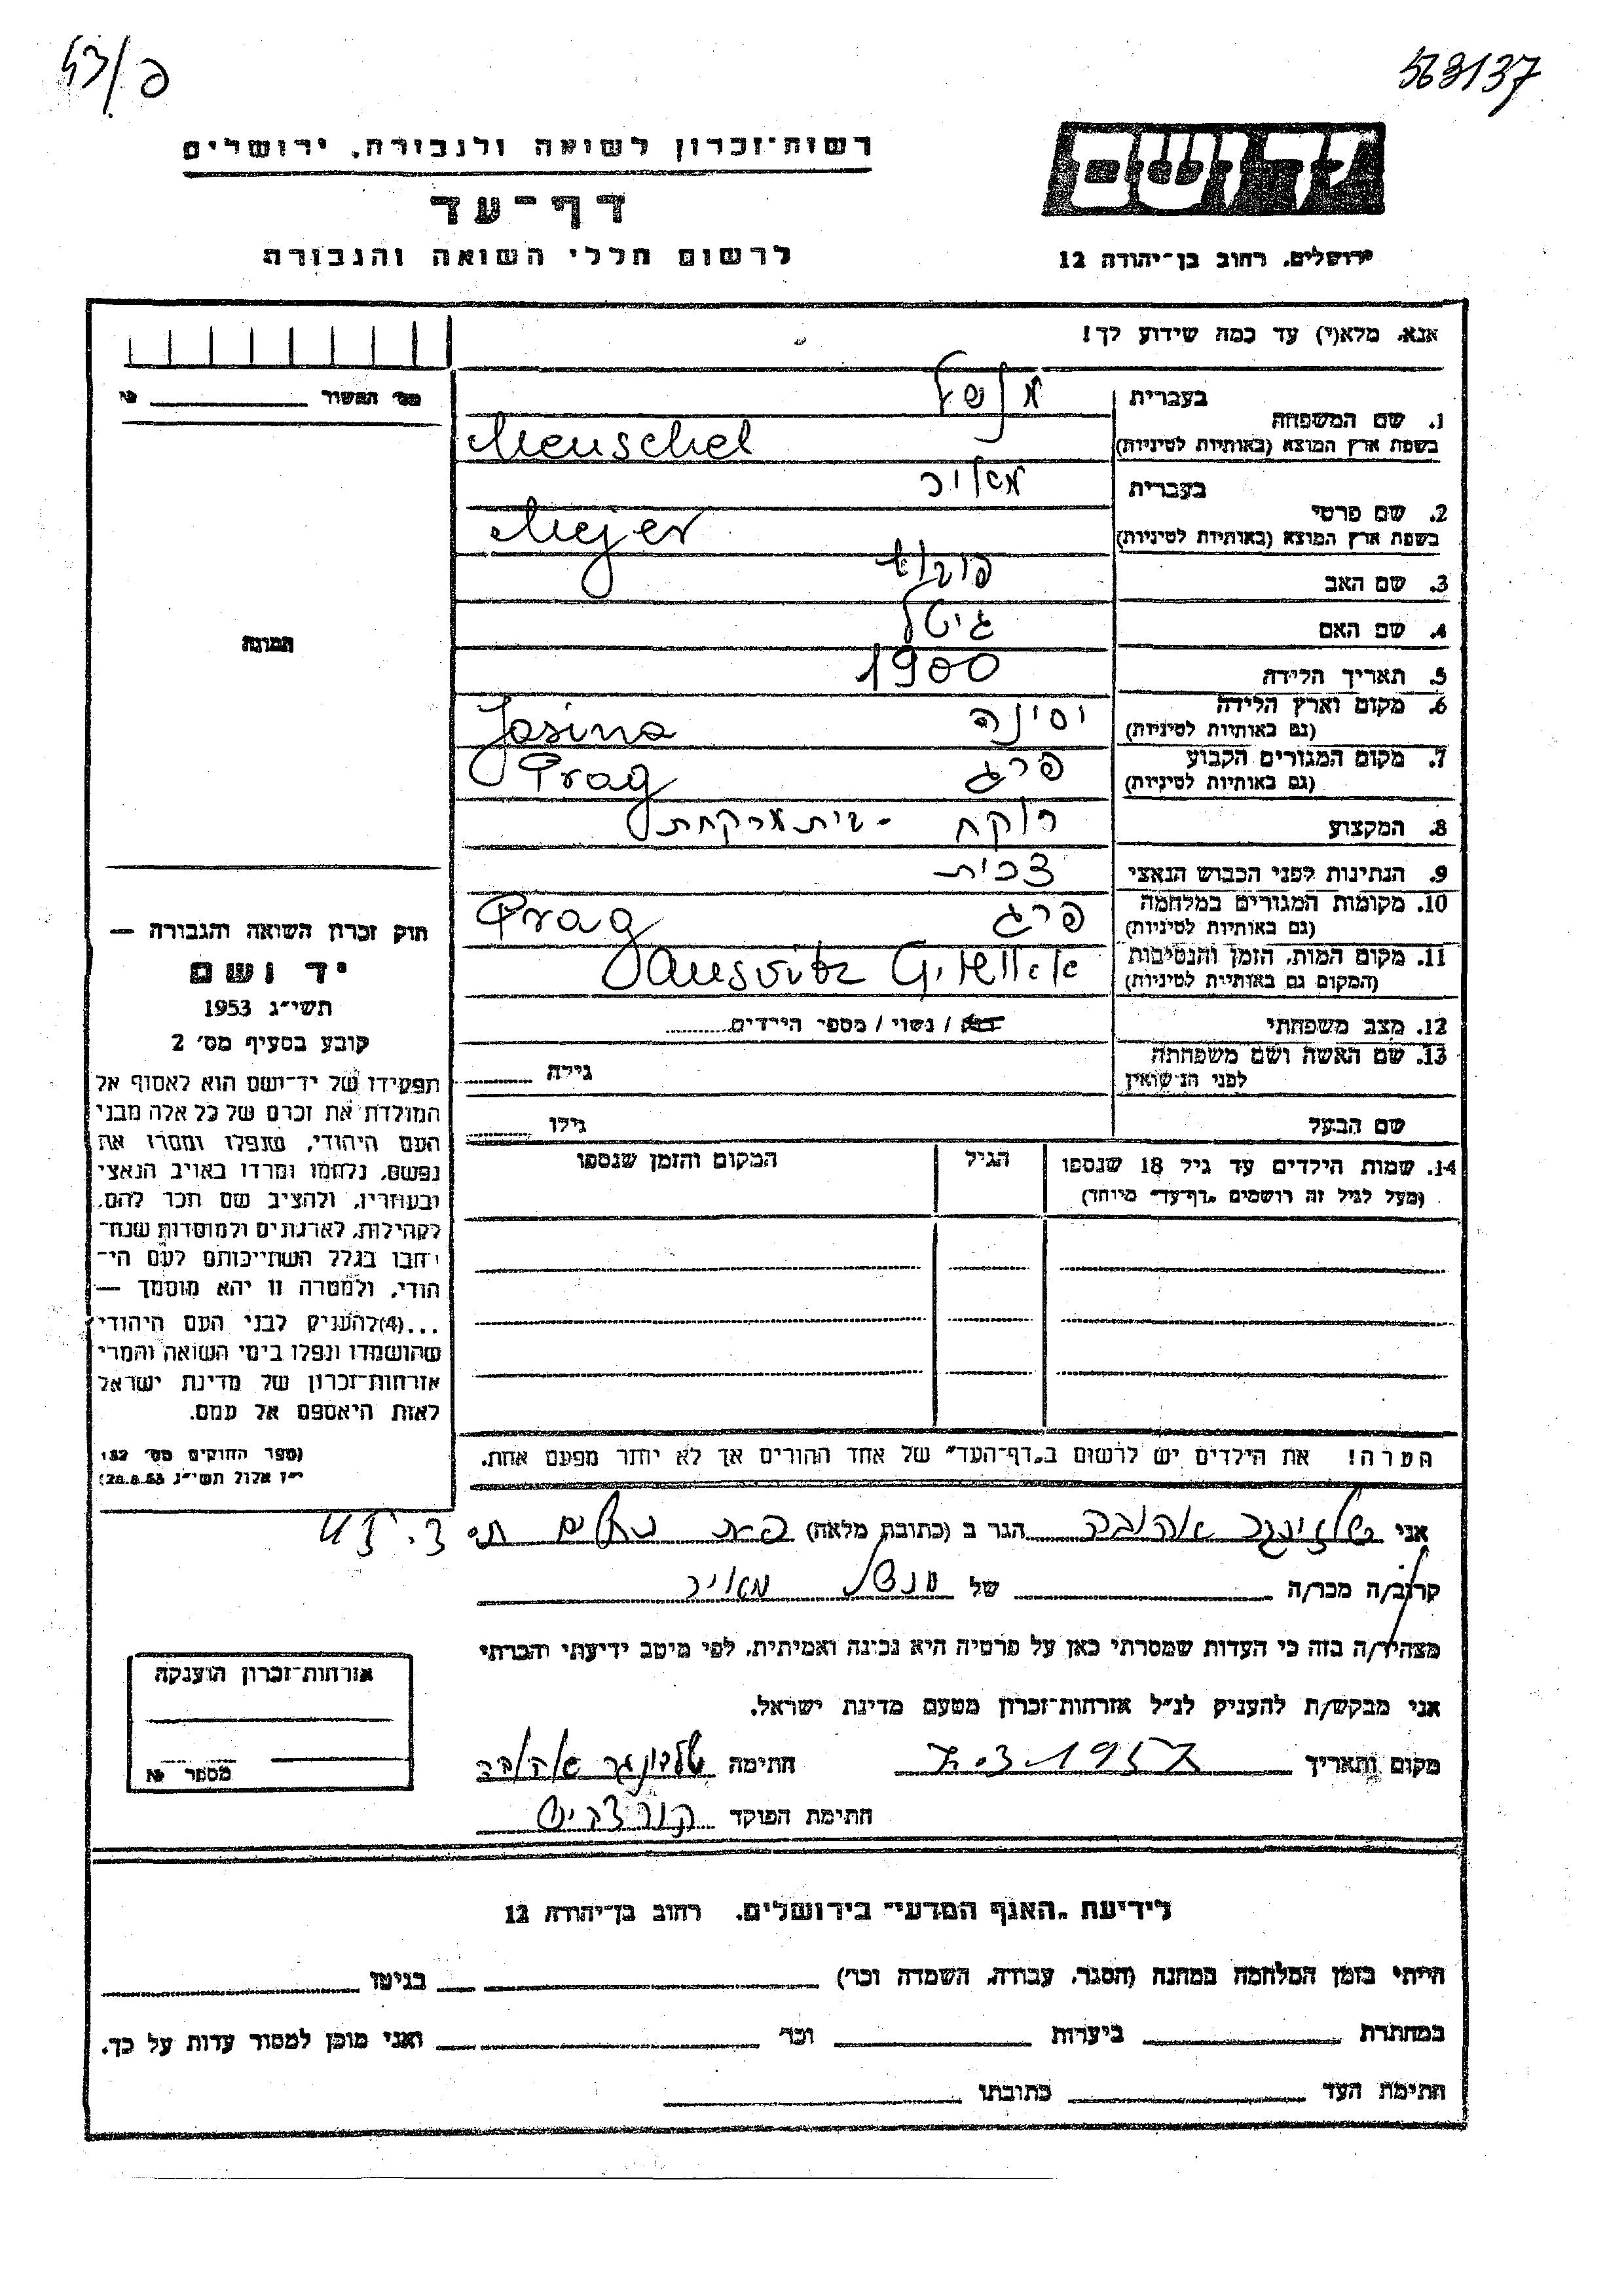 563137
רשות-זכרון לשואה ולגבורה, ירושלים
דף-עד
לרשום חללי השואה והגבורה
יד ושם
ירושלים, רחוב בן-יהודה 12
אנא, מלא(י) עד כמה שידוע לך!
מס' האשור
1. שם המשפחה
בעברית מנשל
בשפת ארץ המוצא (באותיות לטיניות) Menschel
2. שם פרטי
בעברית מאיר
בשפת ארץ המוצא (באותיות לטיניות) Mejer
3. שם האב
4. שם האם גיטל
5. תאריך הלידה 1900
6. מקום וארץ הלידה (גם באותיות לטיניות) יסינה Jasina
7. מקום המגורים הקבוע (גם באותיות לטיניות) פרג Prag
8. המקצוע רוקח - בית מרקחת
9. הנתינות לפני הכבוש הנאצי צכית
10. מקומות המגורים במלחמה (גם באותיות לטיניות) פרג Prag
11. מקום המות, הזמן והנסיבות (המקום גם באותיות לטיניות) Ausvitz
12. מצב משפחתי רווק / נשוי / מספר הילדים
13. שם האשה ושם משפחתה לפני הנישואין גילה
שם הבעל גילו
14. שמות הילדים עד גיל 18 שנספו
(מעל לגיל זה רושמים "דף-עד" מיוחד)
הגיל
המקום והזמן שנספו
התמונה
חוק זכרון השואה והגבורה —
יד ושם
תשי"ג 1953
קובע בסעיף מס' 2
תפקידו של יד-ושם הוא לאסוף אל
המולדת את זכרם של כל אלה מבני
העם היהודי, שנפלו ומסרו את
נפשם, נלחמו ומרדו באויב הנאצי
ובעוזריו, ולהציב שם וזכר להם,
לקהילות, לארגונים ולמוסדות שנח-
רבו בגלל השתייכותם לעם הי-
הודי, ולמטרה זו יהא מוסמך —
...(4) להעניק לבני העם היהודי
שהושמדו ונפלו בימי השואה והמרי
אזרחות-זכרון של מדינת ישראל
לאות היאספם אל עמם.
(ספר החוקים מס' 132,
י"ז אלול תשי"ג 28.8.53)
הערה! את הילדים יש לרשום ב"דף-העד" של אחד ההורים אך לא יותר מפעם אחת.
אני שלזינגר אהובה הגר ב (כתובת מלאה)
קרוב/ה מכר/ה של מנשל מאיר
מצהיר/ה בזה כי העדות שמסרתי כאן על פרטיה היא נכונה ואמיתית, לפי מיטב ידיעתי והכרתי
אני מבקש/ת להעניק לנ"ל אזרחות-זכרון מטעם מדינת ישראל.
מקום ותאריך חתימה שלזינגר אהובה
חתימת הפוקד
אזרחות-זכרון הוענקה
מספר
לידיעת "האגף המדעי" בירושלים, רחוב בן-יהודה 12
הייתי בזמן המלחמה במחנה (הסגר, עבודה, השמדה וכו') בגיטו
במחתרת ביערות וכו' ואני מוכן למסור עדות על כך.
חתימת העד כתובתו